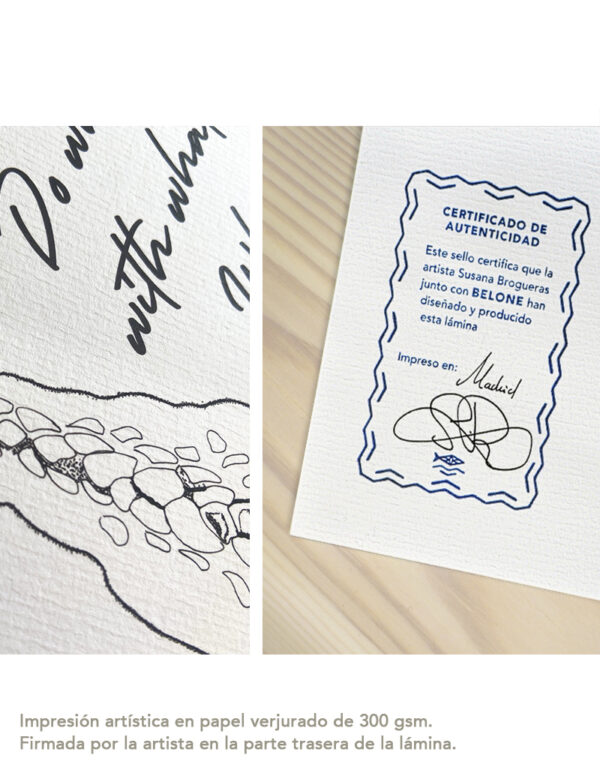 Do
with wha
CERTIFICADO DE
AUTENTICIDAD
Este sello certifica que la
artista Susana Brogueras
junto con BELONE han
diseñado y producido
esta lámina
Impreso en: Madrid
Impresión artística en papel verjurado de 300 gsm.
Firmada por la artista en la parte trasera de la lámina.